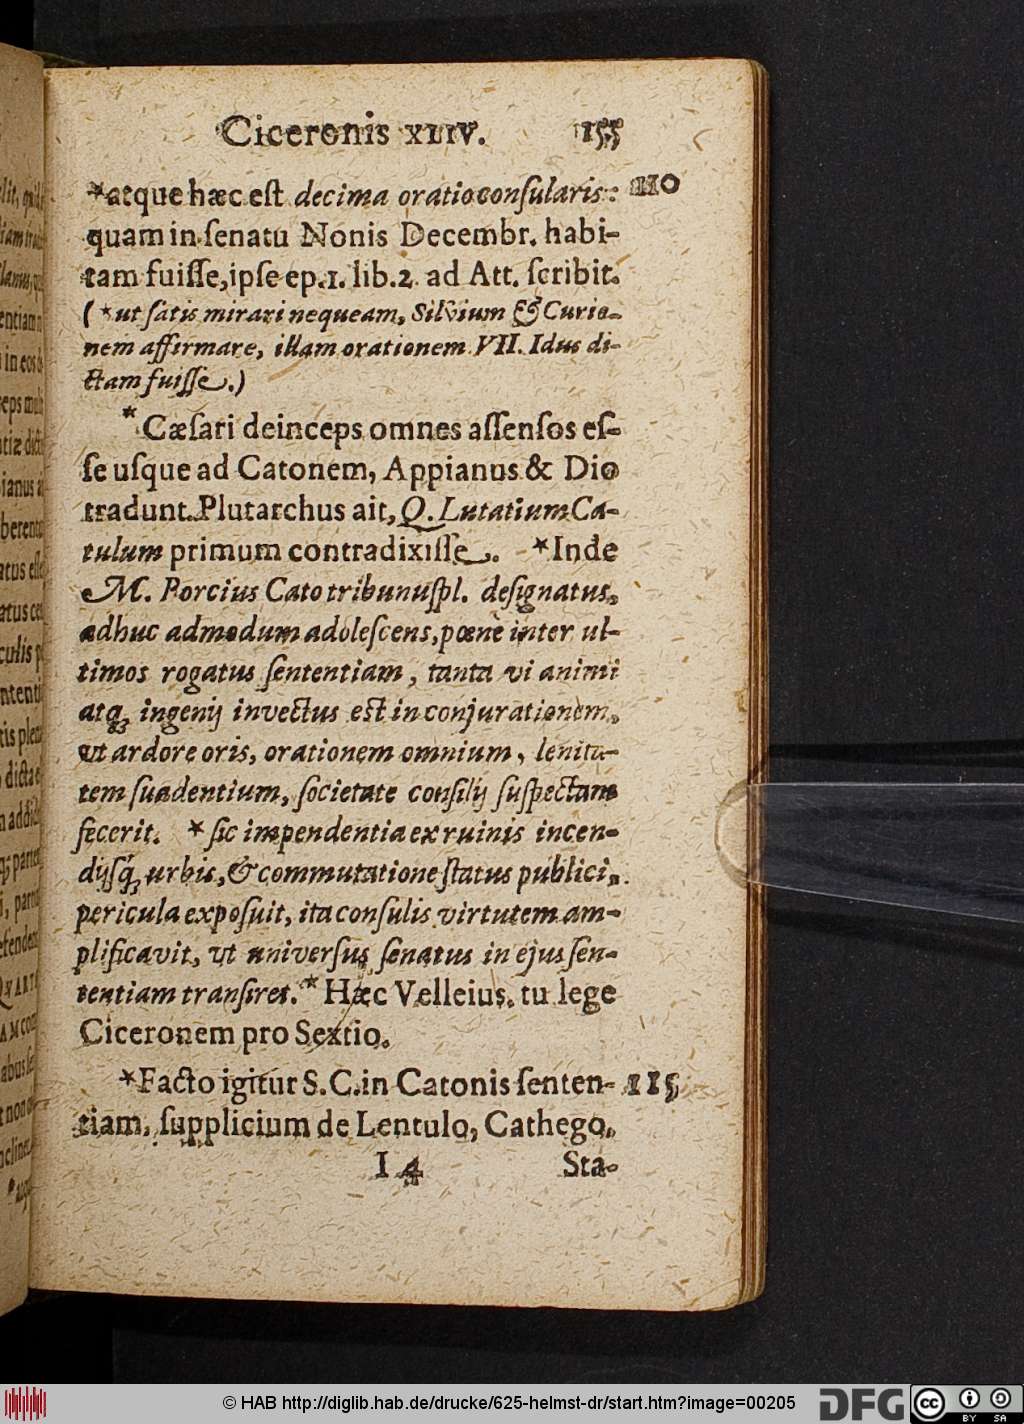 Ciceronis XLIV. 155
*atque hæc est decima oratio consularis: 110
quam in ſenatu Nonis Decembr. habi-
tam fuiſſe, ipſe ep. 1. lib. 2. ad Att. ſcribit.
(*ut ſatis mirari nequeam, Silvium & Curio-
nem affirmare, illam orationem VII. Idus di-
ctam fuiſſe.)
*Cæſari deinceps omnes aſſenſos eſ-
ſe uſque ad Catonem, Appianus & Dio
tradunt. Plutarchus ait, Q. Lutatium Ca-
tulum primum contradixiſſe. *Inde
M. Porcius Cato tribunuſpl. deſignatus,
adhuc admodum adoleſcens, pœnè inter ul-
timos rogatus ſententiam, tanta vi animi
atq; ingenij invectus est in conjurationem,
ut ardore oris, orationem omnium, lenita-
tem ſuadentium, ſocietate conſilij ſuſpectam
fecerit. *ſic impendentia ex ruinis incen-
dijſq́; urbis, & commutatione ſtatus publici,
pericula expoſuit, ita conſulis virtutem am-
plificavit, ut univerſus ſenatus in ejus ſen-
tentiam tranſiret.* Hæc Velleius. tu lege
Ciceronem pro Sextio.
*Facto igitur S. C. in Catonis ſenten- 115
tiam, ſupplicium de Lentulo, Cathego,
I 4 Sta-
© HAB http://diglib.hab.de/drucke/625-helmst-dr/start.htm?image=00205 DFG cc BY SA